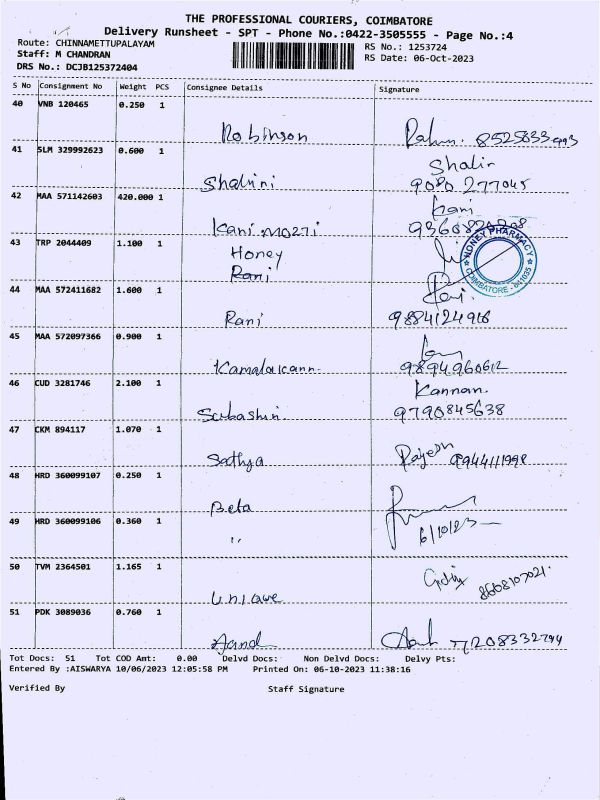 THE PROFESSIONAL COURIERS, COIMBATORE
Delivery Runsheet - SPT - Phone No.:0422-3505555 - Page No.:4
Route: CHINNAMETTUPALAYAM
Staff: M CHANDRAN
DRS No.: DCJB125372404
RS No.: 1253724
RS Date: 06-Oct-2023
S No Consignment No Weight PCS Consignee Details Signature
40 VNB 120465 0.250 1
Robinson 8525833993
41 SLM 329992623 0.600 1
Shalini Shalin
9080 277045
42 MAA 571142603 420.000 1
Kanimozi Kani
43 TRP 2044409 1.100 1
Honey
Rani
HONEY PHARMACY
COIMBATORE - 641035
44 MAA 572411682 1.600 1
Rani 9884124916
45 MAA 572097366 0.900 1
Kamalakann 9894960612
46 CUD 3281746 2.100 1
Kannan.
Subashini 9790845638
47 CKM 894117 1.070 1
Sathya Rajesh 9944111998
48 HRD 360099107 0.250 1
Beta
49 HRD 360099106 0.360 1
,, 6/10/23
50 TVM 2364501 1.165 1
Unique 8608107021.
51 PDK 3089036 0.760 1
Anand 7208332794
Tot Docs: 51 Tot COD Amt: 0.00 Delvd Docs: Non Delvd Docs: Delvy Pts:
Entered By :AISWARYA 10/06/2023 12:05:58 PM Printed On: 06-10-2023 11:38:16
Verified By Staff Signature